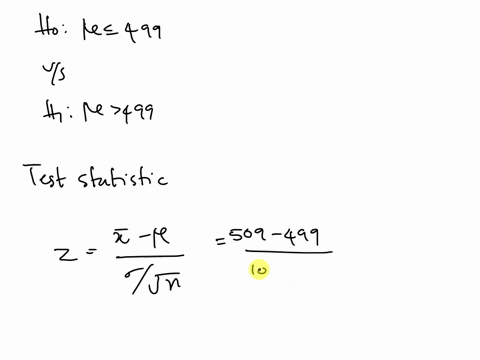 H₀: μ ≤ 499
v/s
H₁: μ > 499
Test statistic
z = (x̄ − μ) / (σ/√n) = (509 − 499) / 10